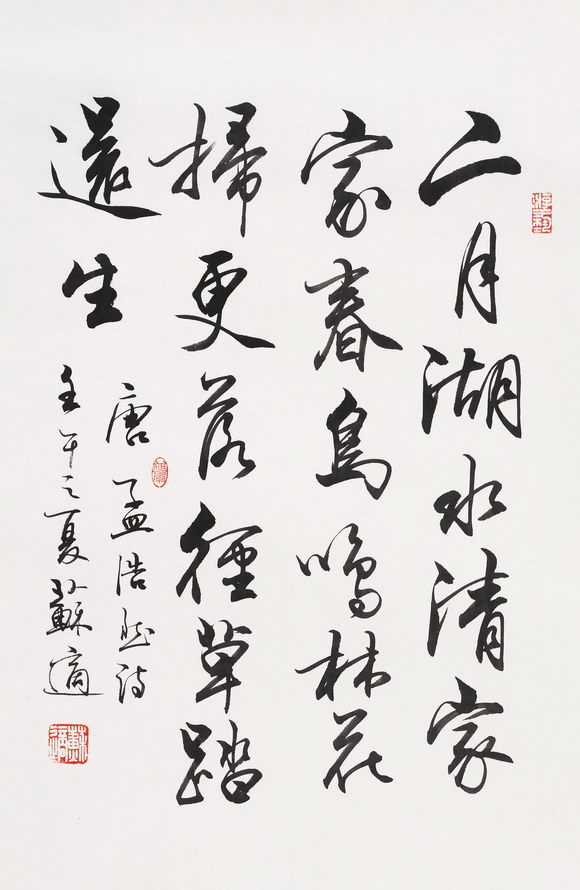 二月湖水清家
家春鳥鳴林花
掃更落徑草踏
還生
唐孟浩然詩
壬午之夏蘇適